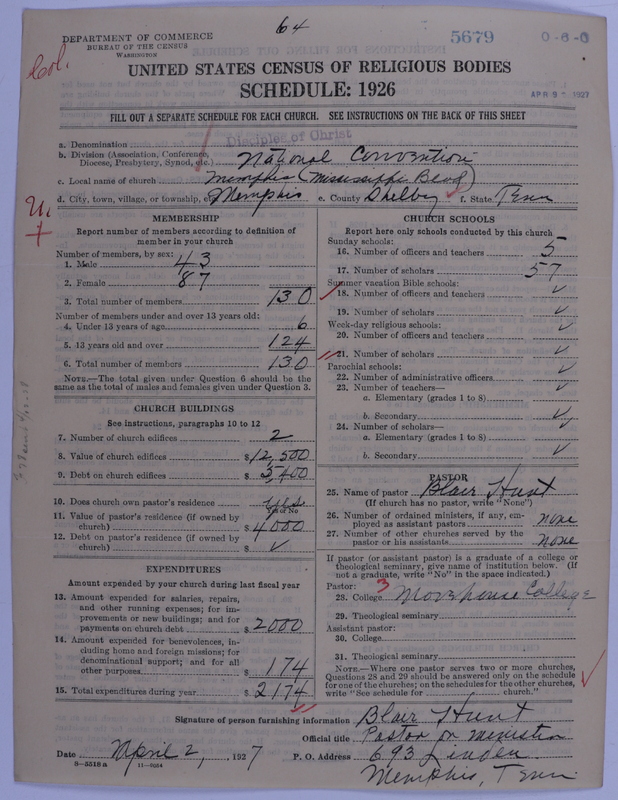 64
DEPARTMENT OF COMMERCE
BUREAU OF THE CENSUS
WASHINGTON
5679
0-6-0
Col.
APR 9 1927
UNITED STATES CENSUS OF RELIGIOUS BODIES
SCHEDULE: 1926
FILL OUT A SEPARATE SCHEDULE FOR EACH CHURCH. SEE INSTRUCTIONS ON THE BACK OF THIS SHEET
a. Denomination Disciples of Christ
b. Division (Association, Conference, Diocese, Presbytery, Synod, etc.) National Convention
c. Local name of church Memphis (Mississippi Blvd)
d. City, town, village, or township, etc. Memphis e. County Shelby f. State Tenn
U.
MEMBERSHIP
Report number of members according to definition of
member in your church
Number of members, by sex:
1. Male 43
2. Female 87
3. Total number of members 130
Number of members under and over 13 years old:
4. Under 13 years of age 6
5. 13 years old and over 124
6. Total number of members 130
NOTE.—The total given under Question 6 should be the
same as the total of males and females given under Question 3.
CHURCH BUILDINGS
See instructions, paragraphs 10 to 12
7. Number of church edifices 2
8. Value of church edifices $12,500
9. Debt on church edifices $5,400
10. Does church own pastor's residence yes
Yes or No
11. Value of pastor's residence (if owned by
church) $4000
12. Debt on pastor's residence (if owned by
church) $ ✓
EXPENDITURES
Amount expended by your church during last fiscal year
13. Amount expended for salaries, repairs,
and other running expenses; for im-
provements or new buildings; and for
payments on church debt $2000
14. Amount expended for benevolences, in-
cluding home and foreign missions; for
denominational support; and for all
other purposes $174
15. Total expenditures during year $2174
CHURCH SCHOOLS
Report here only schools conducted by this church
Sunday schools:
16. Number of officers and teachers 5
17. Number of scholars 57
Summer vacation Bible schools:
18. Number of officers and teachers ✓
19. Number of scholars ✓
Week-day religious schools:
20. Number of officers and teachers ✓
21. Number of scholars ✓
Parochial schools:
22. Number of administrative officers ✓
23. Number of teachers—
a. Elementary (grades 1 to 8)
b. Secondary ✓
24. Number of scholars—
a. Elementary (grades 1 to 8)
b. Secondary ✓
PASTOR
25. Name of pastor Blair Hunt
(If church has no pastor, write "None")
26. Number of ordained ministers, if any, em-
ployed as assistant pastors none
27. Number of other churches served by the
pastor or his assistants none
If pastor (or assistant pastor) is a graduate of a college or
theological seminary, give name of institution below. (If
not a graduate, write "No" in the space indicated.)
Pastor:
28. College 3 Morehouse College
29. Theological seminary
Assistant pastor:
30. College
31. Theological seminary
NOTE.—Where one pastor serves two or more churches,
Questions 28 and 29 should be answered only on the schedule
for one of the churches; on the schedules for the other churches,
write "See schedule for church."
Signature of person furnishing information Blair Hunt
Official title Pastor or minister
Date April 2, 1927 P. O. Address 693 Linden
Memphis, Tenn
8-5518 a 11-9054